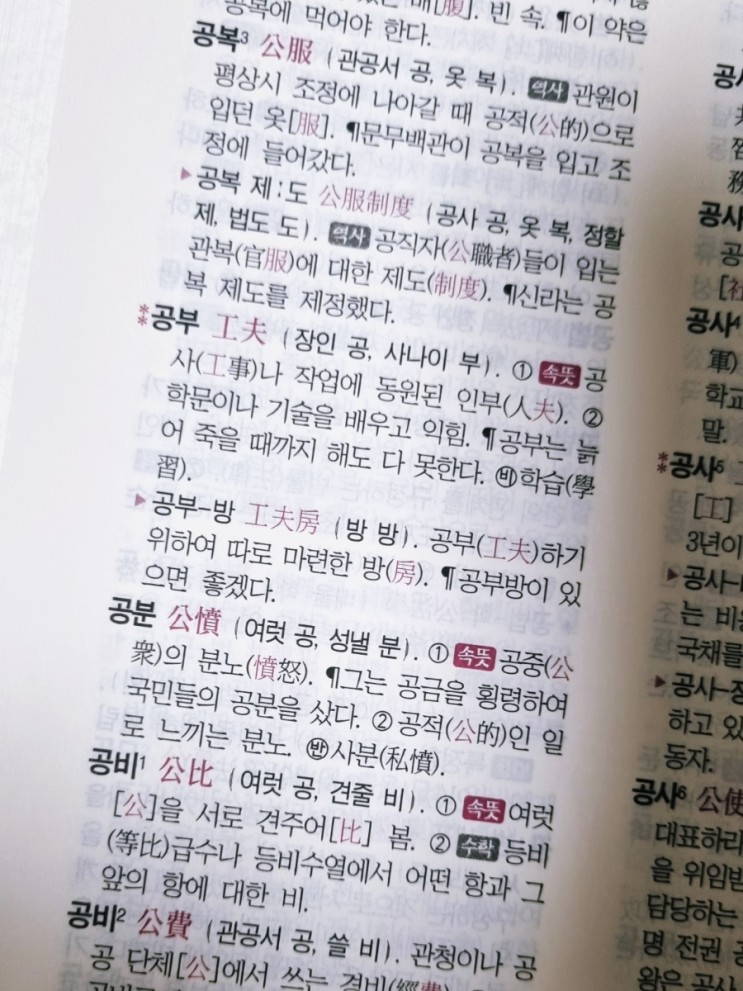 배[腹]. 빈 속. ¶이 약은
공복에 먹어야 한다.
공복³ 公服 (관공서 공, 옷 복). 역사 관원이
평상시 조정에 나아갈 때 공적(公的)으로
입던 옷[服]. ¶문무백관이 공복을 입고 조
정에 들어갔다.
▶공복 제:도 公服制度 (공사 공, 옷 복, 정할
제, 법도 도). 역사 공직자(公職者)들이 입는
관복(官服)에 대한 제도(制度). ¶신라는 공
복 제도를 제정했다.
**공부 工夫 (장인 공, 사나이 부). ① 속뜻 공
사(工事)나 작업에 동원된 인부(人夫). ②
학문이나 기술을 배우고 익힘. ¶공부는 늙
어 죽을 때까지 해도 다 못한다. ㉥학습(學
習).
▶공부-방 工夫房 (방 방). 공부(工夫)하기
위하여 따로 마련한 방(房). ¶공부방이 있
으면 좋겠다.
공분 公憤 (여럿 공, 성낼 분). ① 속뜻 공중(公
衆)의 분노(憤怒). ¶그는 공금을 횡령하여
국민들의 공분을 샀다. ② 공적(公的)인 일
로 느끼는 분노. ㉫사분(私憤).
공비¹ 公比 (여럿 공, 견줄 비). ① 속뜻 여럿
[公]을 서로 견주어[比] 봄. ② 수학 등비
(等比)급수나 등비수열에서 어떤 항과 그
앞의 항에 대한 비.
공비² 公費 (관공서 공, 쓸 비). 관청이나 공
공 단체[公]에서 쓰는 경비(經費).
공사
공사⁴
軍)
학교
말.
**공사⁵
[工]
3년이
▶공사-
는 비용
국채를
▶공사-장
하고 있
동자.
공사⁶ 公使
대표하
을 위임받
담당하는
명 전권 공
왕은 공사